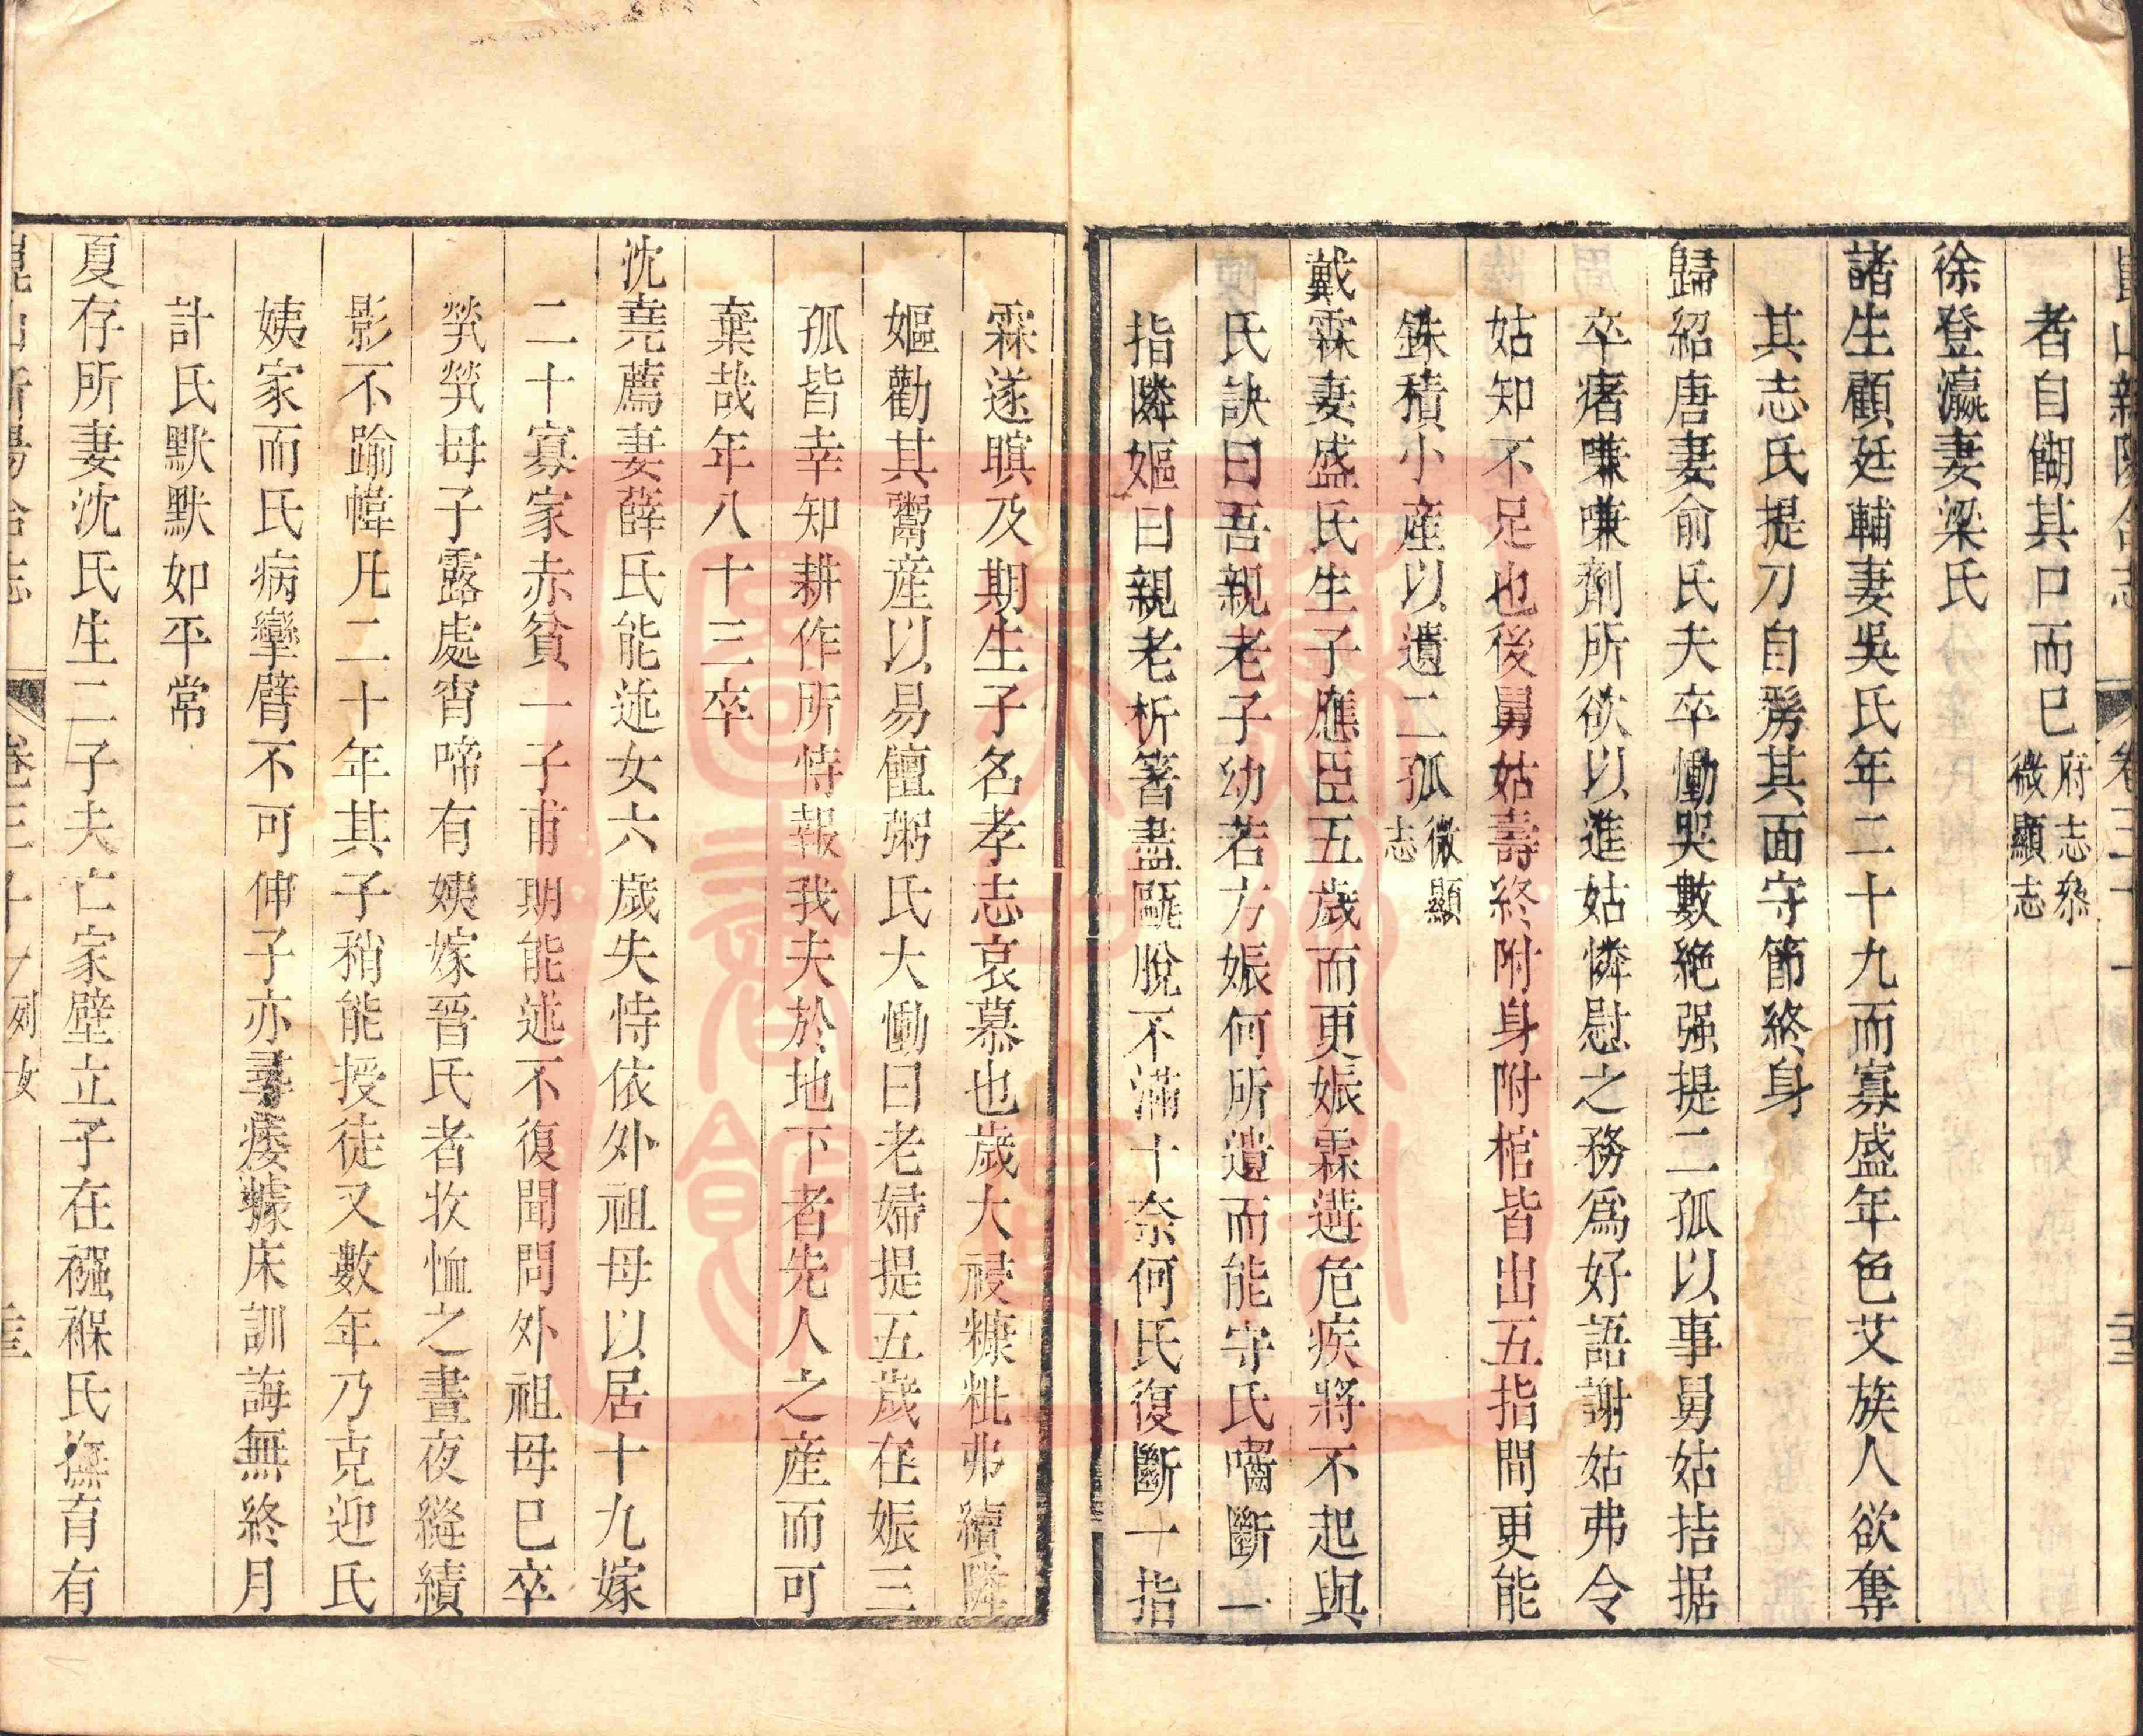 崑山新陽合志 卷三十一
者自餬其口而巳府志叅微顯志
徐登瀛妻梁氏
諸生顧廷輔妻吳氏年二十九而寡盛年色艾族人欲奪
其志氏提刀自剺其面守節終身
歸紹唐妻俞氏夫卒慟哭數絶强提二孤以事舅姑拮据
卒瘏嗛嗛劑所欲以進姑憐慰之務爲好語謝姑弗令
姑知不足也後舅姑壽終附身附棺皆出五指間更能
銖積小產以遺二孤微顯志
戴霖妻盛氏生子應臣五歲而更娠霖遘危疾將不起與
氏訣曰吾親老子幼若方娠何所遺而能守氏嚙斷一
指隣嫗曰親老析箸盡甌脫不滿十奈何氏復斷一指
霖遂瞑及期生子名孝志哀慕也歲大祲糠粃弗續隣
嫗勸其鬻產以易饘粥氏大慟曰老婦提五歲在娠三
孤皆幸知耕作所恃報我夫於地下者先人之產而可
棄哉年八十三卒
沈堯薦妻薛氏能迯女六歲失恃依外祖母以居十九嫁
二十寡家赤貧一子甫期能迯不復聞問外祖母巳卒
煢煢母子露處宵啼有姨嫁晉氏者收恤之晝夜縫績
影不踰幃凡二十年其子稍能授徒又數年乃克迎氏
姨家而氏病攣臂不可伸子亦尋痿據床訓誨無終月
計氏默默如平常
夏存所妻沈氏生二子夫亡家壁立子在襁褓氏撫育有
列女